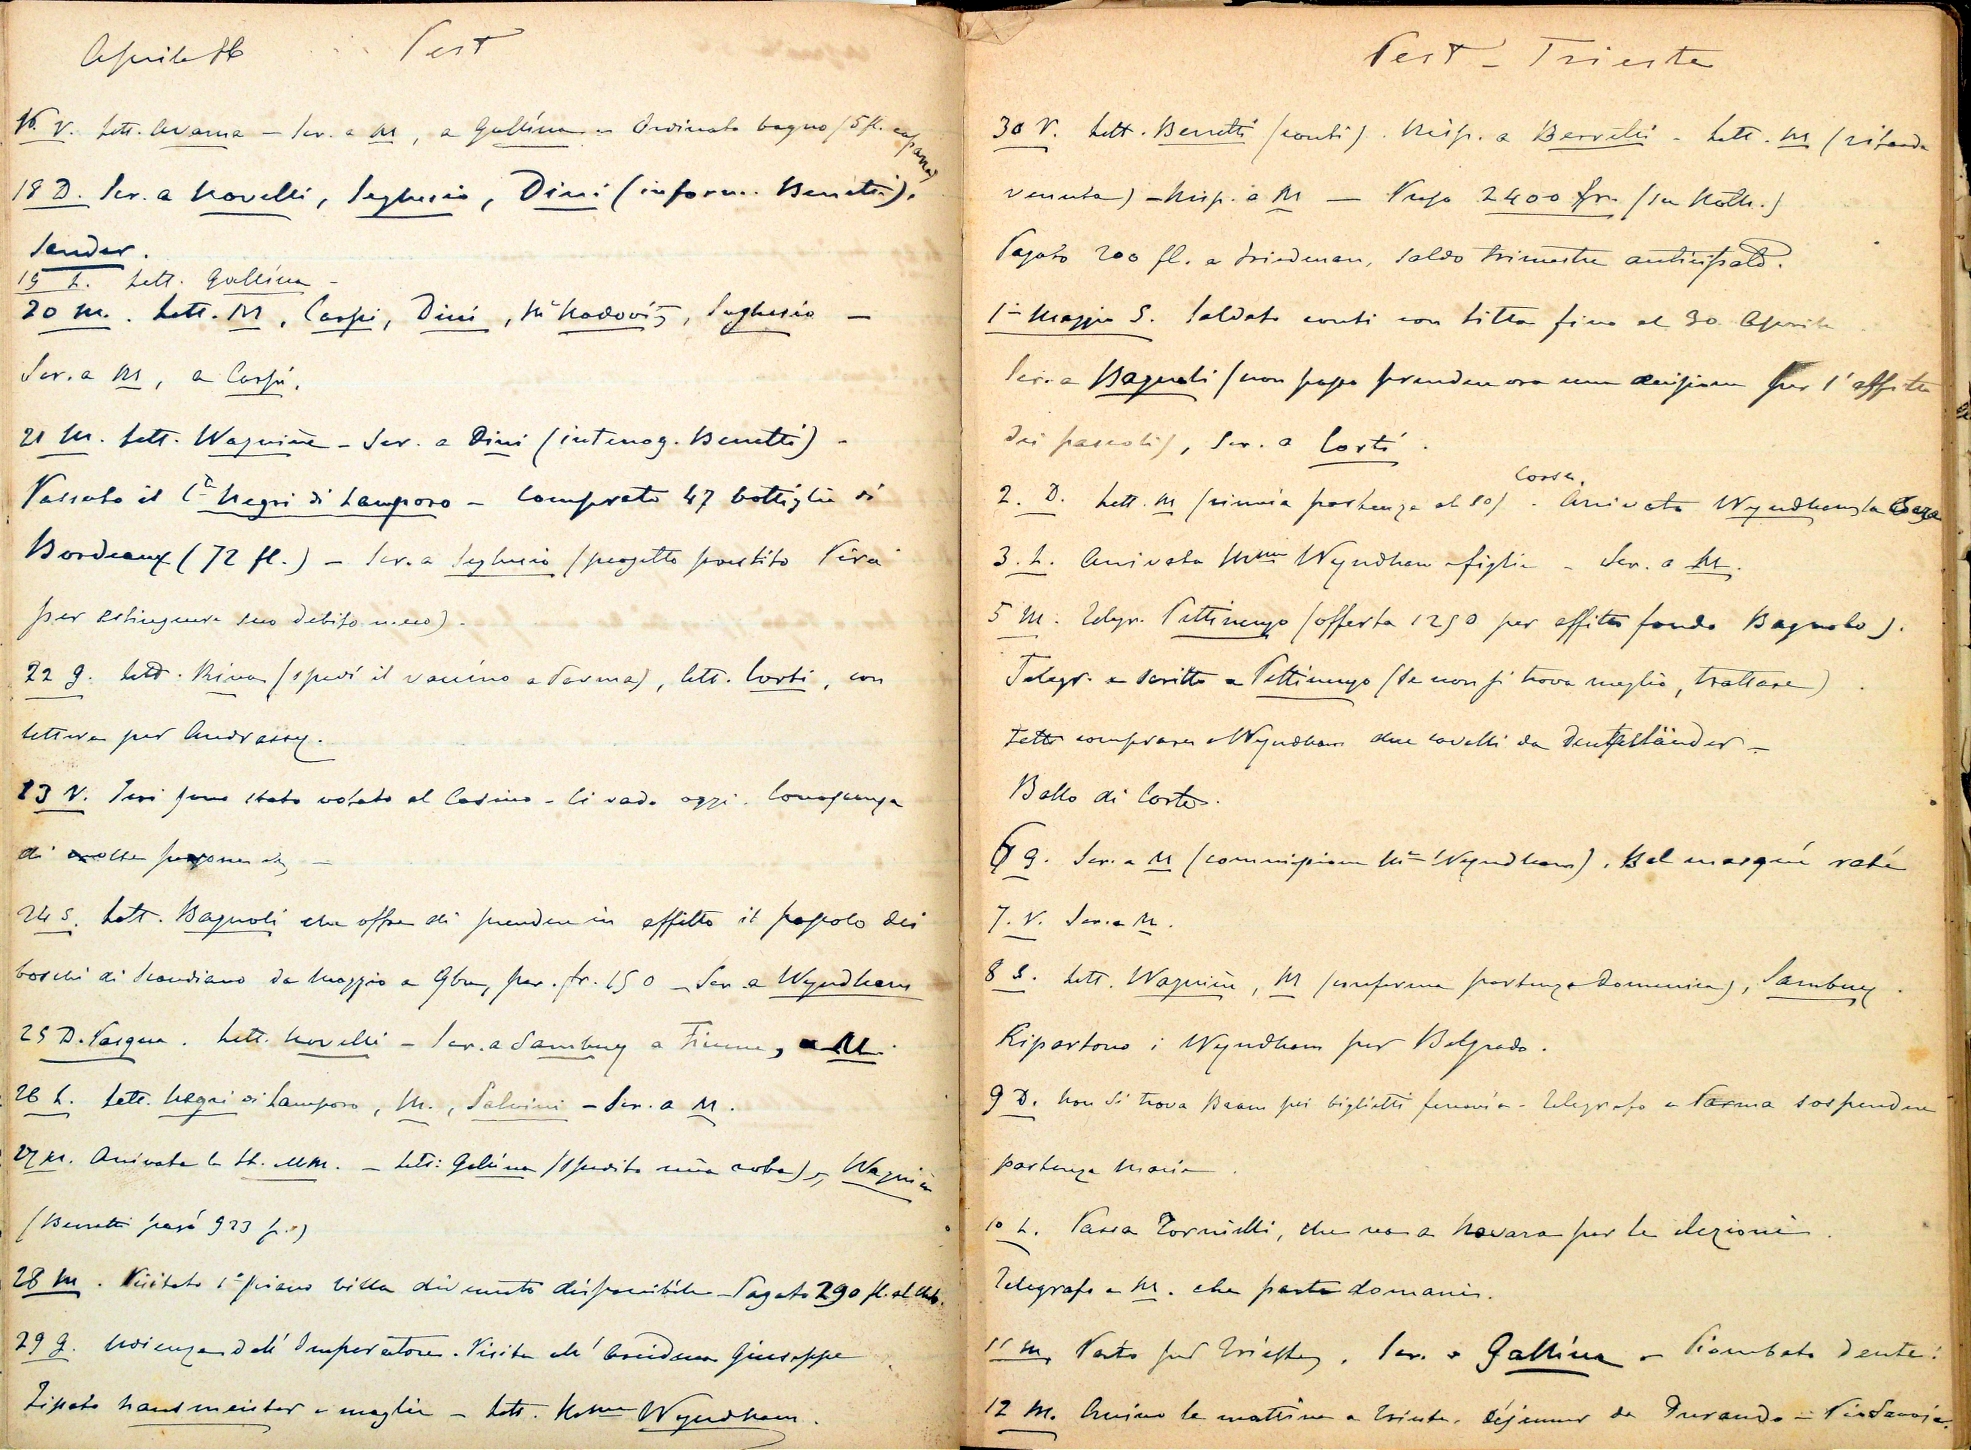 Aprile 86 Pest
16. V. Lett. Avarna – Scr. a M, a Gallina – Ordinato bagno (5 fl. caparra)
18 D. Scr. a Novelli, Seghesio, Dini (inform. Benetti),
Sander.
19 L. Lett. Gallina –
20 M. Lett. M, Carpi, Dini, Seghesio –
Scr. a M, a Carpi.
21 M. Lett. Wagnière – Scr. a Dini (interrog. Benetti) –
Passato il Cte Negri di Lamporo – Comprate 47 bottiglie di
Bordeaux (72 fl.) – Scr. a Seghesio (progetto prestito
per estinguere suo debito meco) –
22 G. Lett. Riva (spedì il vaccino a Parma), lett. Corti, con
lettera per Andrassy.
23 V. Ieri sono stato votato al Casino – Ci vado oggi. Conoscenza
di molte persone –
24 S. Lett. Bagnoli che offre di prendere in affitto il pascolo dei
boschi di Scandiano da Maggio a 9bre, per fr. 150 – Scr. a Wyndham
25 D. Pasqua. Lett. Novelli – Scr. a Sambuy a Fiume, a M.
26 L. Lett. Negri di Lamporo, M., Salvini – Scr. a M.
27 M. Arrivata la – Lett. Gallina (spedita mia roba), Wagnière
(Benetti pagò 923 f.)
28 M. Visitato 1º piano villa divenuto disponibile – Pagato 290 fl. al Club.
29 G. Udienza dell'Imperatore. Visita all'Arciduca Giuseppe
hausmeister e moglie – Lett. Wyndham.
Pest – Trieste
30 V. Lett. Benetti (conti). Risp. a Benetti – Lett. M (ritarda
venuta) – Risp. a M – 2400 fr. (su Roth.)
Pagato 200 fl. a Friedman, saldo trimestre anticipato.
1º Maggio S. Saldato conti con Titta fino al 30 Aprile
Scr. a Bagnoli (non posso prendere ora una decisione per l'affitto
dei pascoli), Scr. a Corti.
2. D. Lett. M (rinvia partenza al 10). Corse. Arrivato Wyndham
3. L. Arrivata Mme Wyndham e figlie – Scr. a M.
5 M. Telegr. Pettinengo (offerta 1250 per affitto fondo Bagnolo).
Telegr. e scritto a Pettinengo (se non si trova meglio, trattare).
Fatto comprare a Wyndham due cavalli da –
Ballo di Corte.
6 G. Scr. a M (commissione Wyndham). Bal masqué raté
7. V. Scr. a M.
8 S. Lett. Wagnière, M (conferma partenza Domenica), Sambuy.
Ripartono i Wyndham per Belgrado.
9 D. Non si trova Beam pei biglietti ferrovia – Telegrafo a Parma sospendere
partenza Maria.
10 L. Passa Tornielli, che va a Novara per le elezioni.
Telegrafo a M. che parta domani.
11 M. Parto per Trieste. Scr. a Gallina – Piombato dente.
12 M. Arrivo la mattina a Trieste. Déjeuner da Durando –